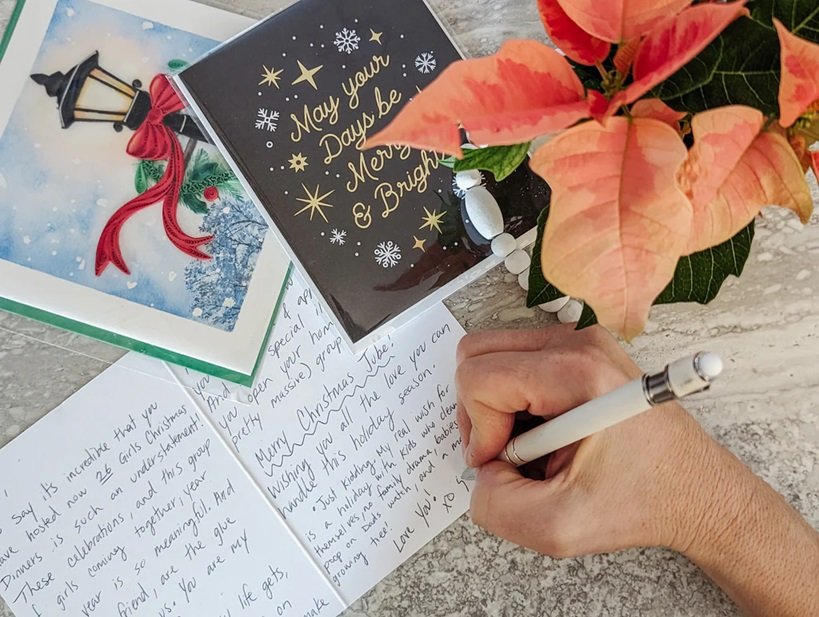 May your
Days be
Merry
& Bright
say it's incredible that you
have hosted now 26 Girls Christmas
Dinners is such an understatement.
These celebrations, and this group
of girls coming together, year
year is so meaningful. And
friend, are the glue
us. You are my
life gets,
on
make
special
you open your hom
pretty massive) group
Merry Christmas Jube!
Wishing you all the love you can
handle this holiday season.
*Just kidding! My real wish for
is a holiday with kids who clean
themselves, no family drama, babies
poop on Dad's watch, and a m
growing tree!
Love you! xo